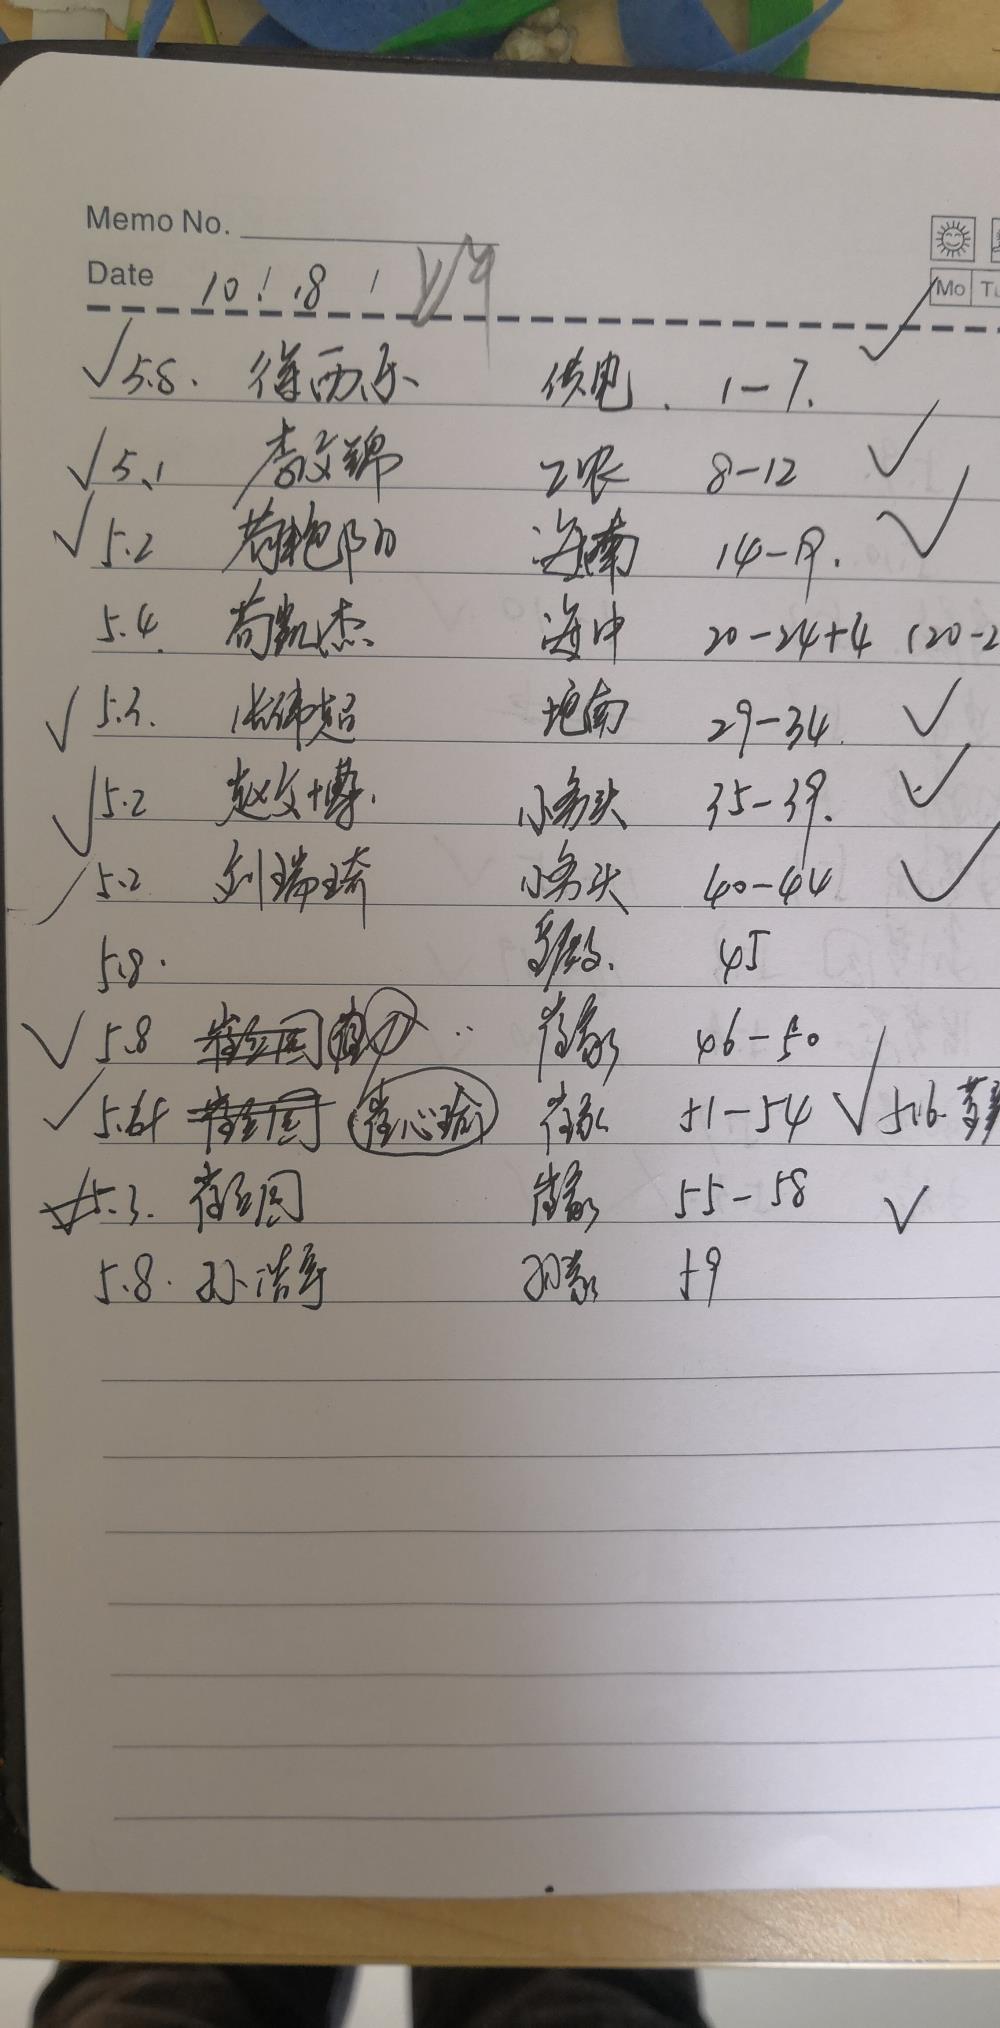 Memo No.
Date 10.18
Mo Tu
5.8. 徐西乐 供电 1-7.
5.1 李文锦 工农 8-12
5.2 海南 14-19.
5.4 苟凯杰 海中 20-24+4 (20-2
5.3. 张伟超 垝南 29-34.
5.2 赵文博. 小务头 35-39.
5.2 刘瑞琦 小务头 40-44
5.8. 45
5.8 崔家 46-50
崔心瑜 崔家 51-54 5.6
5.3. 崔家 55-58
5.8. 孙浩宇 孙家 59